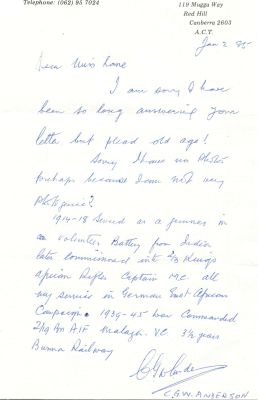 Telephone: (062) 95 7024
119 Mugga Way
Red Hill
Canberra 2603
A.C.T.
Jan 2 85
Dear Miss Lane
I am sorry I have
been so long answering your
letter but plead old age!
Sorry I have no Photo
perhaps because I am not very
Photogenic?
1914-18 Served as a gunner in
a volunteer Battery from India
later commissioned into 2/3 Kings
African Rifles Captain MC. all
my service in German East African
Campaign. 1939-45 war Commanded
2/19 Bn AIF Malaya. V.C. 3½ years
Burma Railway
C.G.W. ANDERSON